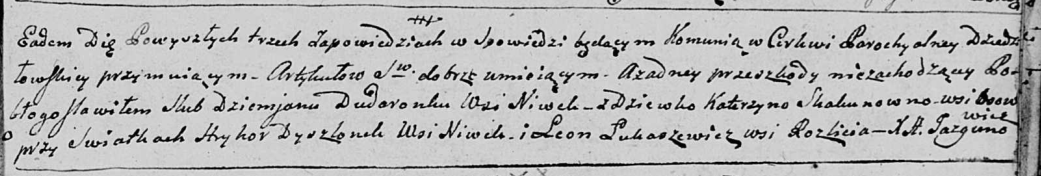 Eadem Die Powyszłych trzech Zapowiedziach w Spowiedzi będącym Komunią w Cerkwi Parochyalney Dziedzi
łowskiey przymuiącym - Artykułow S. dobrze umieiącym - Azadney przeszkody niezachodzącey Po-
błogosławiłem Slub Dziemjanu Dudaronku Wsi Niwek - z Dziewko Katerzyno Skakunowno - wsi Osow
wicz
przy Swiatkach Hryhor Dyszlonek Wsi Niwek - i Leon Łukaszewicz wsi Rozlicia - X. A. Jazguno